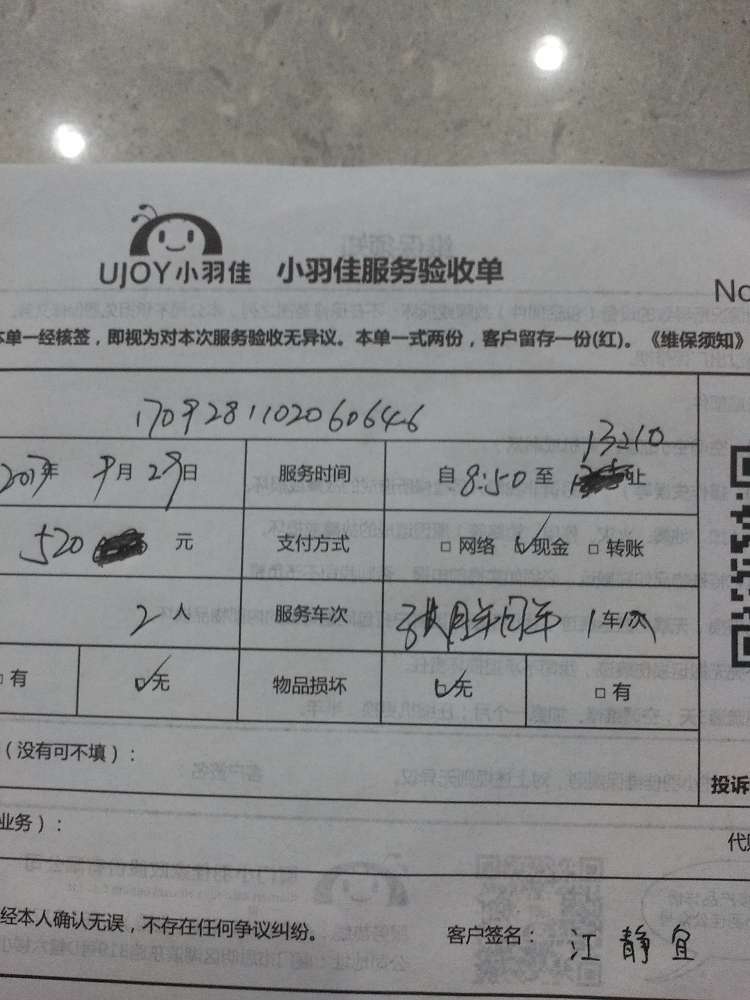 UJOY小羽佳 小羽佳服务验收单
No
本单一经核签，即视为对本次服务验收无异议。本单一式两份，客户留存一份(红)。《维保须知》
1709281102060646
2017年 9月 29日 服务时间 自 8:50 至 止
520 元 支付方式 □ 网络 ☑现金 □ 转账
2 人 服务车次 1 车/次
□ 有 ☑无 物品损坏 ☑无 □ 有
（没有可不填）：
投诉
业务）：
经本人确认无误，不存在任何争议纠纷。 客户签名： 江静宜